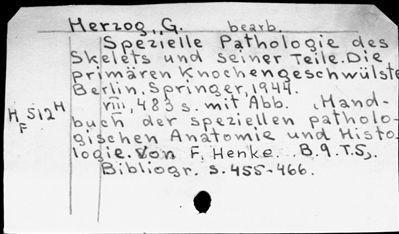 Herzog, G. bearb.
Spezielle Pathologie des
Skelets und seiner Teile. Die
primären Knochengeschwülste
Berlin. Springer, 1944.
VIII, 483 s. mit Abb. (Hand-
H F 512 H
buch der speziellen patholo-
gischen Anatomie und Histo-
logie. Von F. Henke. B. 9. T. 5).
Bibliogr. s. 455-466.